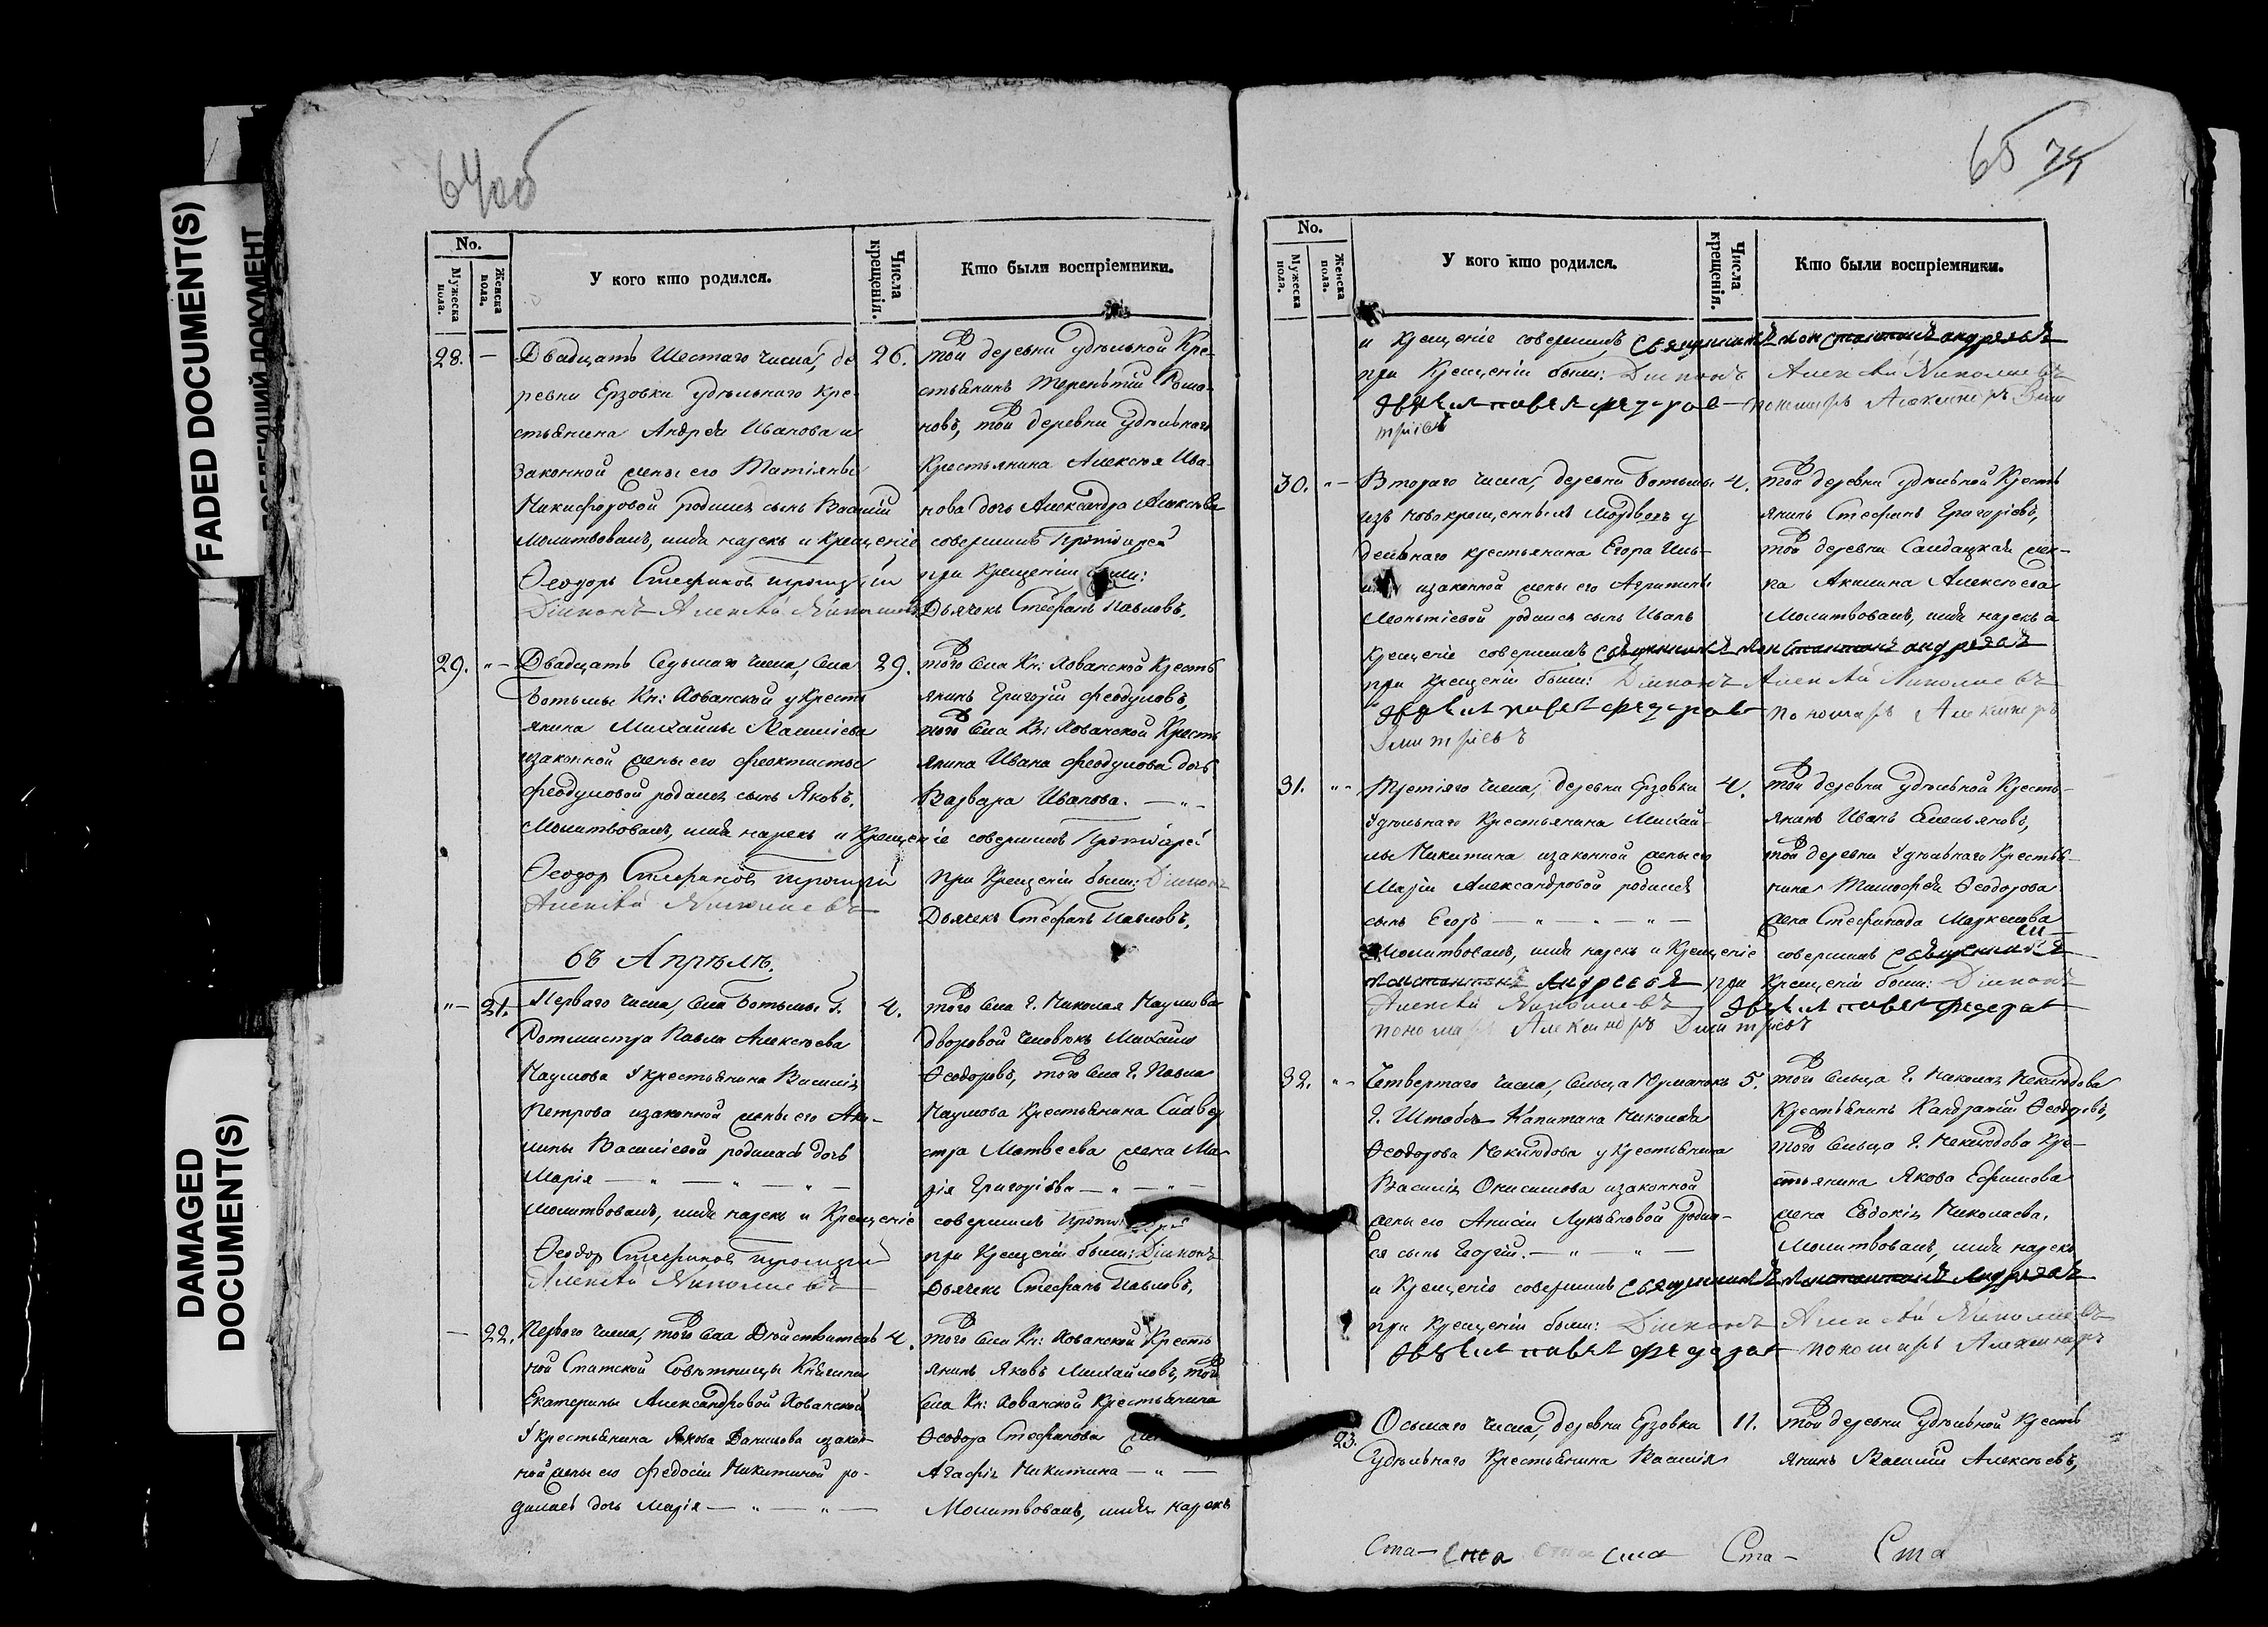 FADED DOCUMENT(S)
DAMAGED
DOCUMENT(S)
64 об
No.
Мужеска пола.
Женска пола.
У кого кто родился.
Числа крещенія.
Кто были воспріемники.
28. — Двадцать Шестаго числа, де
ревни Ерзовки удѣльнаго Кре-
стьянина Андрея Иванова и
законной жены его Татіяны
Никифоровой родился сынъ Василій
Молитвовалъ, имя нарекъ и Крещеніе совершилъ Протоіерей
Ѳеодоръ Стефановъ Троицкій
Діаконъ Алексѣй Николаевъ
26. той деревни удѣльной Кре-
стьянинъ Терентій Рома-
новъ, той деревни удѣльнаго
Крестьянина Алексѣя Ива-
нова дочь Александра Алексѣева
при Крещеніи были:
Дьячекъ Стефанъ Павловъ.
29. "— Двадцать Седьмаго числа, села
Ботьмы Кн: Хованской у Кресть
янина Михайлы Васильева
изаконной жены его Феоктисты
Феодуловой родился сынъ Яковъ.
Молитвовалъ, имя нарекъ и Крещеніе совершилъ Протоіерей
Ѳеодоръ Стефановъ Троицкій
Алексѣй Николаевъ
29. того села Кн: Хованской Кресть
янинъ Григорій Феодуловъ,
того села Кн: Хованской Кресть
янина Ивана Феодулова дочь
Варвара Иванова. — " —
при Крещеніи были: Діаконъ
Дьячекъ Стефанъ Павловъ.
Въ Апрѣлѣ.
"— 21. Перваго числа, села Ботьмы Г.
Ротмистра Павла Алексѣева
Наумова у крестьянина Василія
Петрова изаконной жены его Аку-
лины Васильевой родилась дочь
Марія — " — " — " —
Молитвовалъ, имя нарекъ и Крещеніе совершилъ Протоіерей
Ѳеодоръ Стефановъ Троицкій
Алексѣй Николаевъ
4. того села Г. Николая Наумова
дворовой человѣкъ Михаилъ
Ѳеодоровъ, того села Г. Павла
Наумова Крестьянина Сильве
стра Матвеева жена Ма-
рія Григорьева — " — " —
при Крещеніи были: Діаконъ
Дьячекъ Стефанъ Павловъ,
— 22. Перваго числа, того села Дѣйствитель
ной Статской Совѣтницы Княгини
Екатерины Александровой Хованской
у крестьянина Якова Данилова изакон-
ной жены его Федосіи Никитиной ро-
дилась дочь Марія — " — " —
4. того села Кн: Хованской Кресть
янинъ Яковъ Михайловъ, того
села Кн: Хованской Крестьянина
Ѳеодора Стефанова
Агафія Никитина — " —
Молитвовалъ, имя нарекъ
65
No.
Мужеска пола.
Женска пола.
У кого кто родился.
Числа крещенія.
Кто были воспріемники.
и Крещеніе совершилъ священникъ Константинъ Андреевъ
при Крещеніи были: Діаконъ Алексѣй Николаевъ
пономарь Александръ Дми
тріевъ
30. "— Втораго числа, деревни Ботьмы
изъ новокрещенныхъ Мордвовъ у
дельнаго крестьянина Егора Иль-
изаконной жены его Агрипины
Леонтіевой родился сынъ Иванъ
крещеніе совершилъ священникъ Константинъ Андреевъ
при крещеніи были: Діаконъ Алексѣй Николаевъ
пономарь Александръ
Дмитріевъ
4. той деревни удѣльной Кресть
янинъ Стефанъ Григорьевъ,
той деревни Солдатская жен-
ка Акилина Алексѣева
Молитвовалъ, имя нарекъ и
31. "— Третіяго числа, деревни Ерзовки
Удѣльнаго Крестьянина Михай-
лы Никитина изаконной жены его
Маріи Александровой родился
сынъ Егоръ — " — " — " —
Молитвовалъ, имя нарекъ и Крещеніе совершилъ священникъ
Константинъ Андреевъ при Крещеніи были: Діаконъ
Алексѣй Николаевъ
пономарь Александръ Дмитріевъ
4. той деревни удѣльной Кресть-
янинъ Иванъ Емельяновъ,
той деревни удѣльнаго Крестья-
нина Тимофея Ѳеодорова
жена Стефанида Маркелова
32. "— Четвертаго числа, Сельца Юрманокъ
Г. Штабсъ Капитана Николая
Ѳеодорова Некиюдова у Крестьянина
Василія Онисимова изаконной
жены его Анисіи Лукьяновой роди-
ся сынъ Георгій. — " — " —
и Крещеніе совершилъ священникъ Константинъ Андреевъ
при Крещеніи были: Діаконъ Алексѣй Николаевъ
пономарь Александръ
5. того Сельца Г. Николая Неклюдова
Крестьянинъ Кандратій Ѳеодоровъ,
того Сельца Г. Неклюдова Кре-
стьянина Якова Ефимова
жена Евдокія Николаева.
Молитвовалъ, имя нарекъ
23. Осьмаго числа, деревни Ерзовки
Удѣльнаго Крестьянина Василія
11. той деревни удѣльной Кресть
янинъ Василій Алексѣевъ,
Ста— Ста Ста Ста— Ста